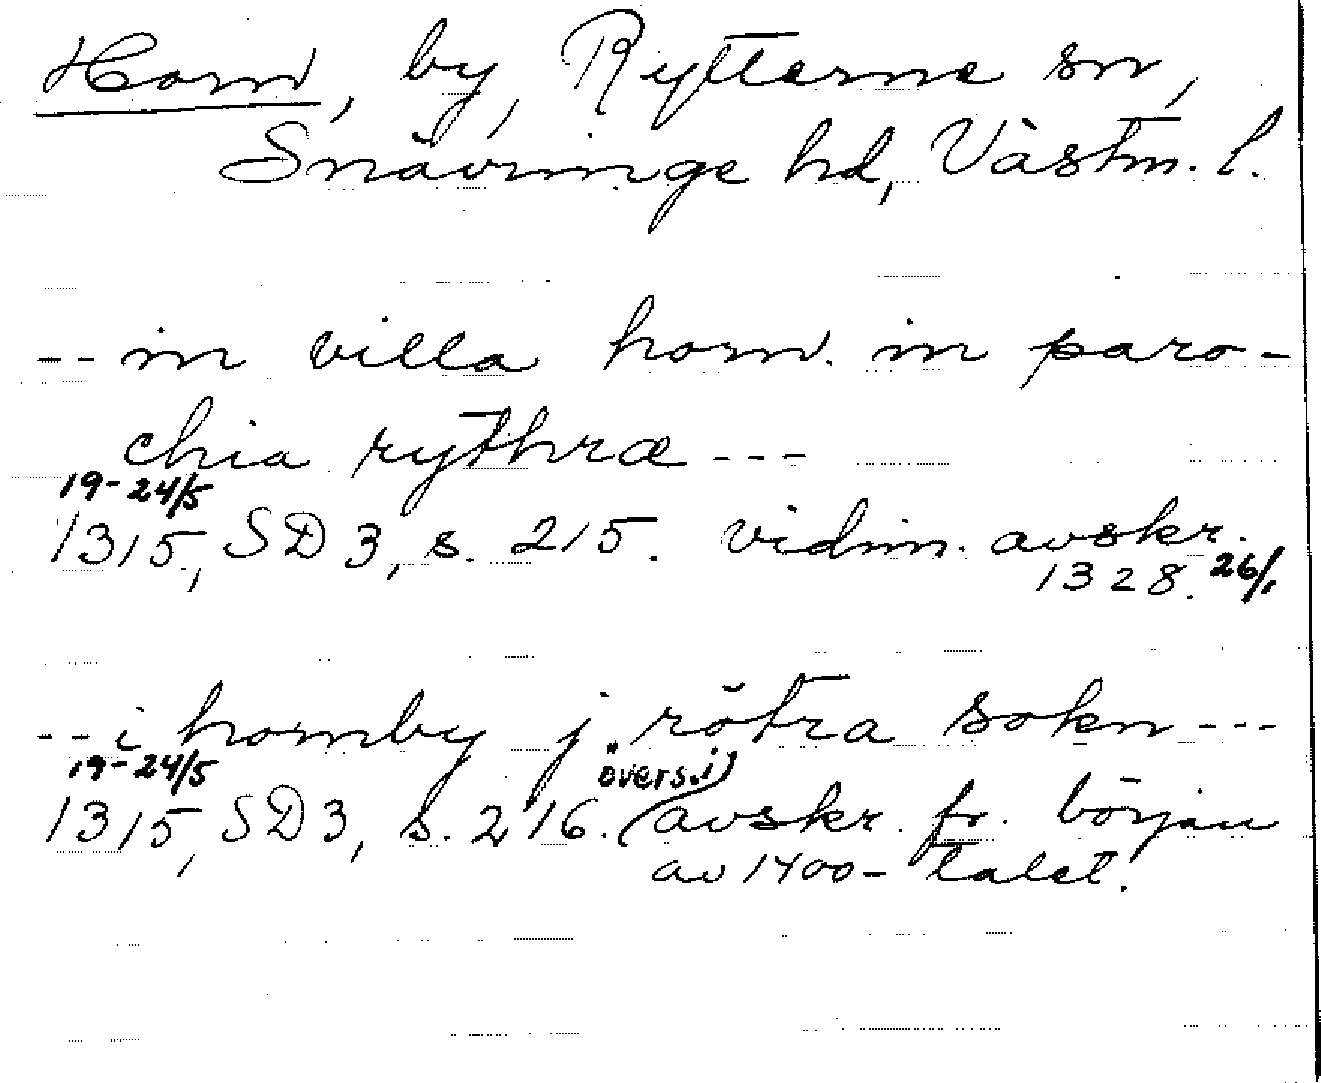 Horn, by, Rytterne sn,
Snävringe hd, Västm. l.
-- in villa horn. in paro-
chia rythræ ---
19-24/5
1315, SD 3, s. 215. vidim. avskr.
1328. 26/1
-- i hornby j rötra sokn ---
19-24/5 övers. i
1315, SD 3, s. 216. avskr. fr. början
av 1400-talet.